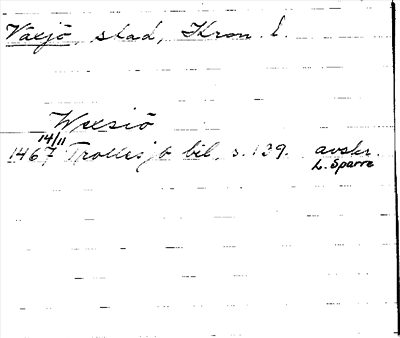 Växjö stad, Kron. l.
Wexsiö
14/11
1467 Trollesjö bil, s. 139. avskr.
L. Sparre